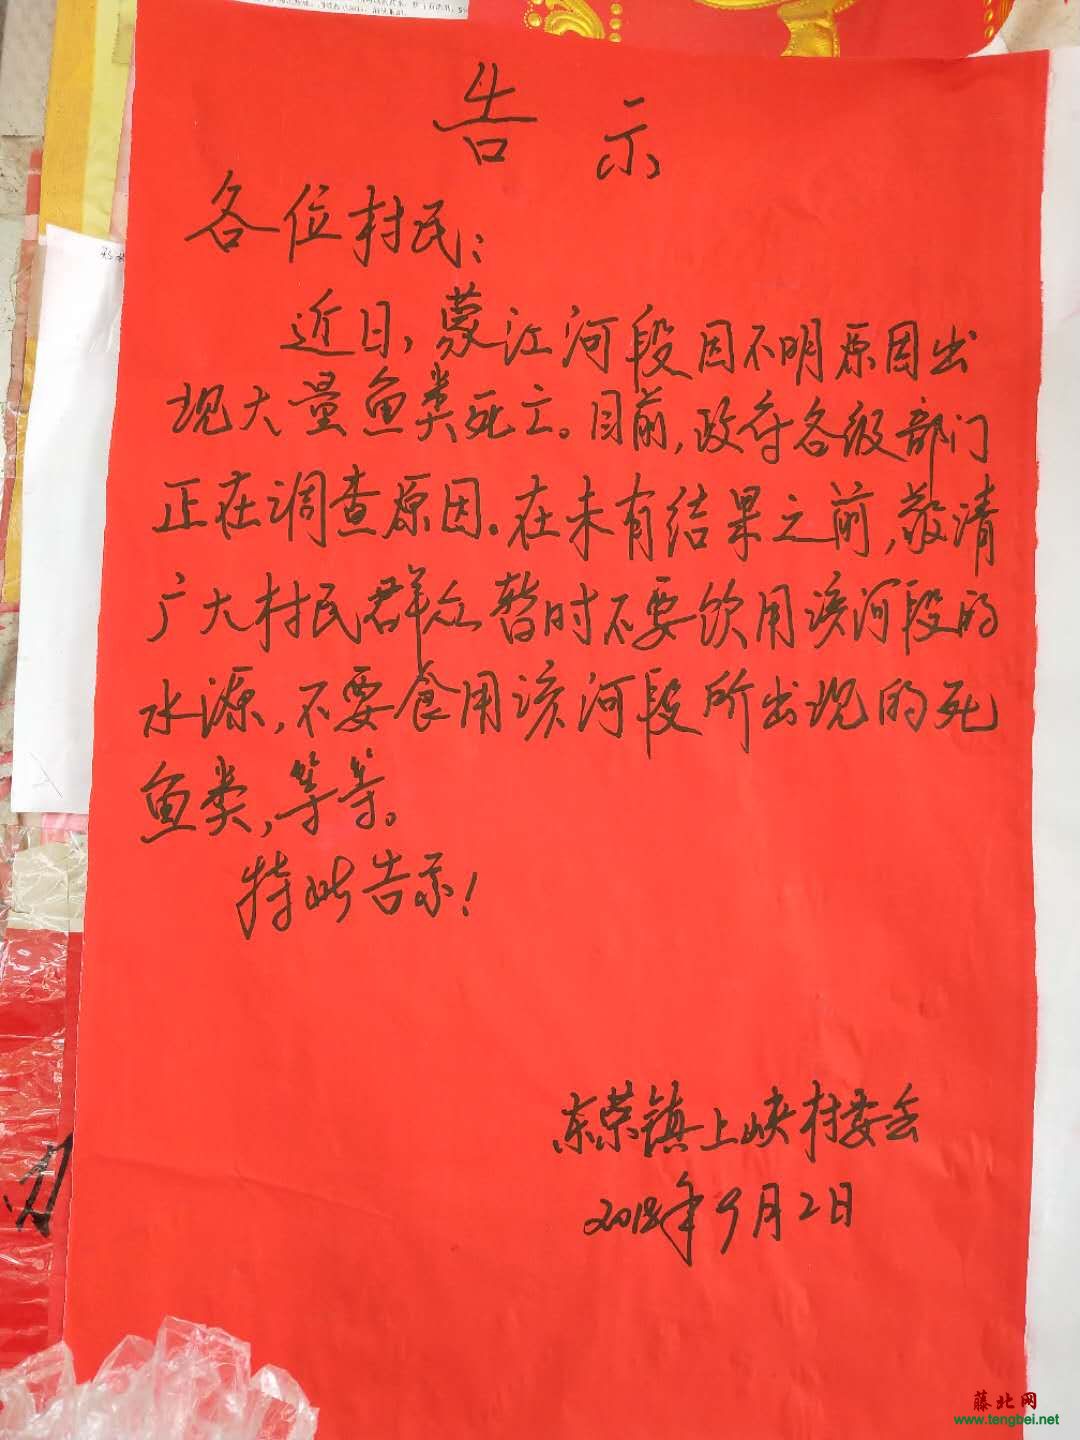 告示
各位村民：
近日，蒙江河段因不明原因出
现大量鱼类死亡。目前，政府各级部门
正在调查原因。在未有结果之前，敬请
广大村民群众暂时不要饮用该河段的
水源，不要食用该河段所出现的死
鱼类，等等。
特此告示！
东荣镇上峡村委会
2018年9月2日
藤北网
www.tengbei.net